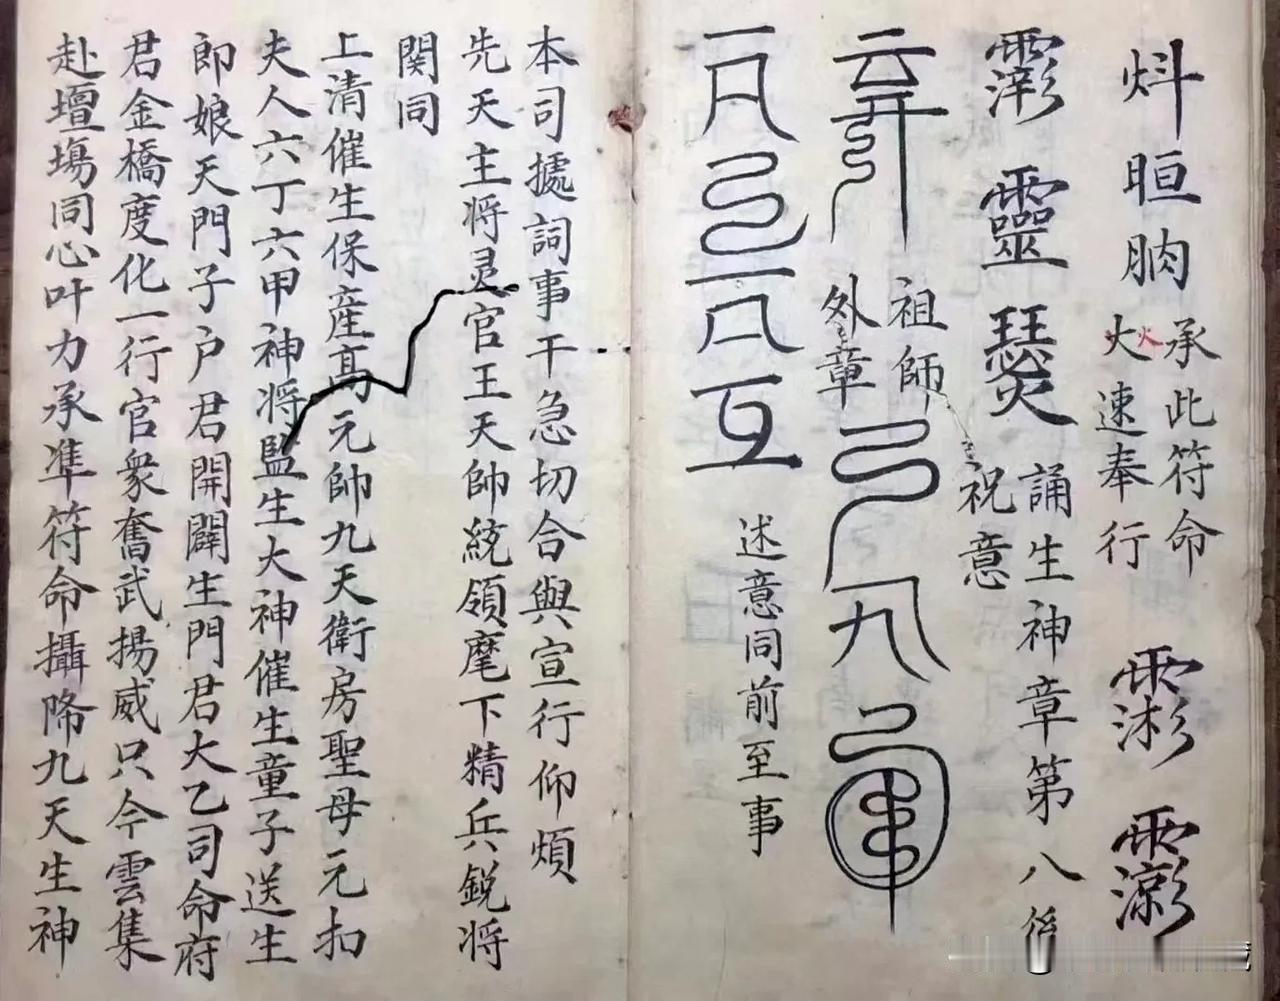 炓 晅 朒
承此符命
火速奉行
靈
誦生神章第八後
祝意
祖師
外章
述意同前至事
本司據詞事干急切合與宣行仰煩
先天主将灵官王天帥統領麾下精兵鋭将
関同
上清催生保産髙元帥九天衛房聖母元扣
夫人六丁六甲神将監生大神催生童子送生
郎娘天門子户君開闢生門君大乙司命府
君金橋度化一行官衆奮武揚威只今雲集
赴壇塲同心叶力承凖符命攝降九天生神